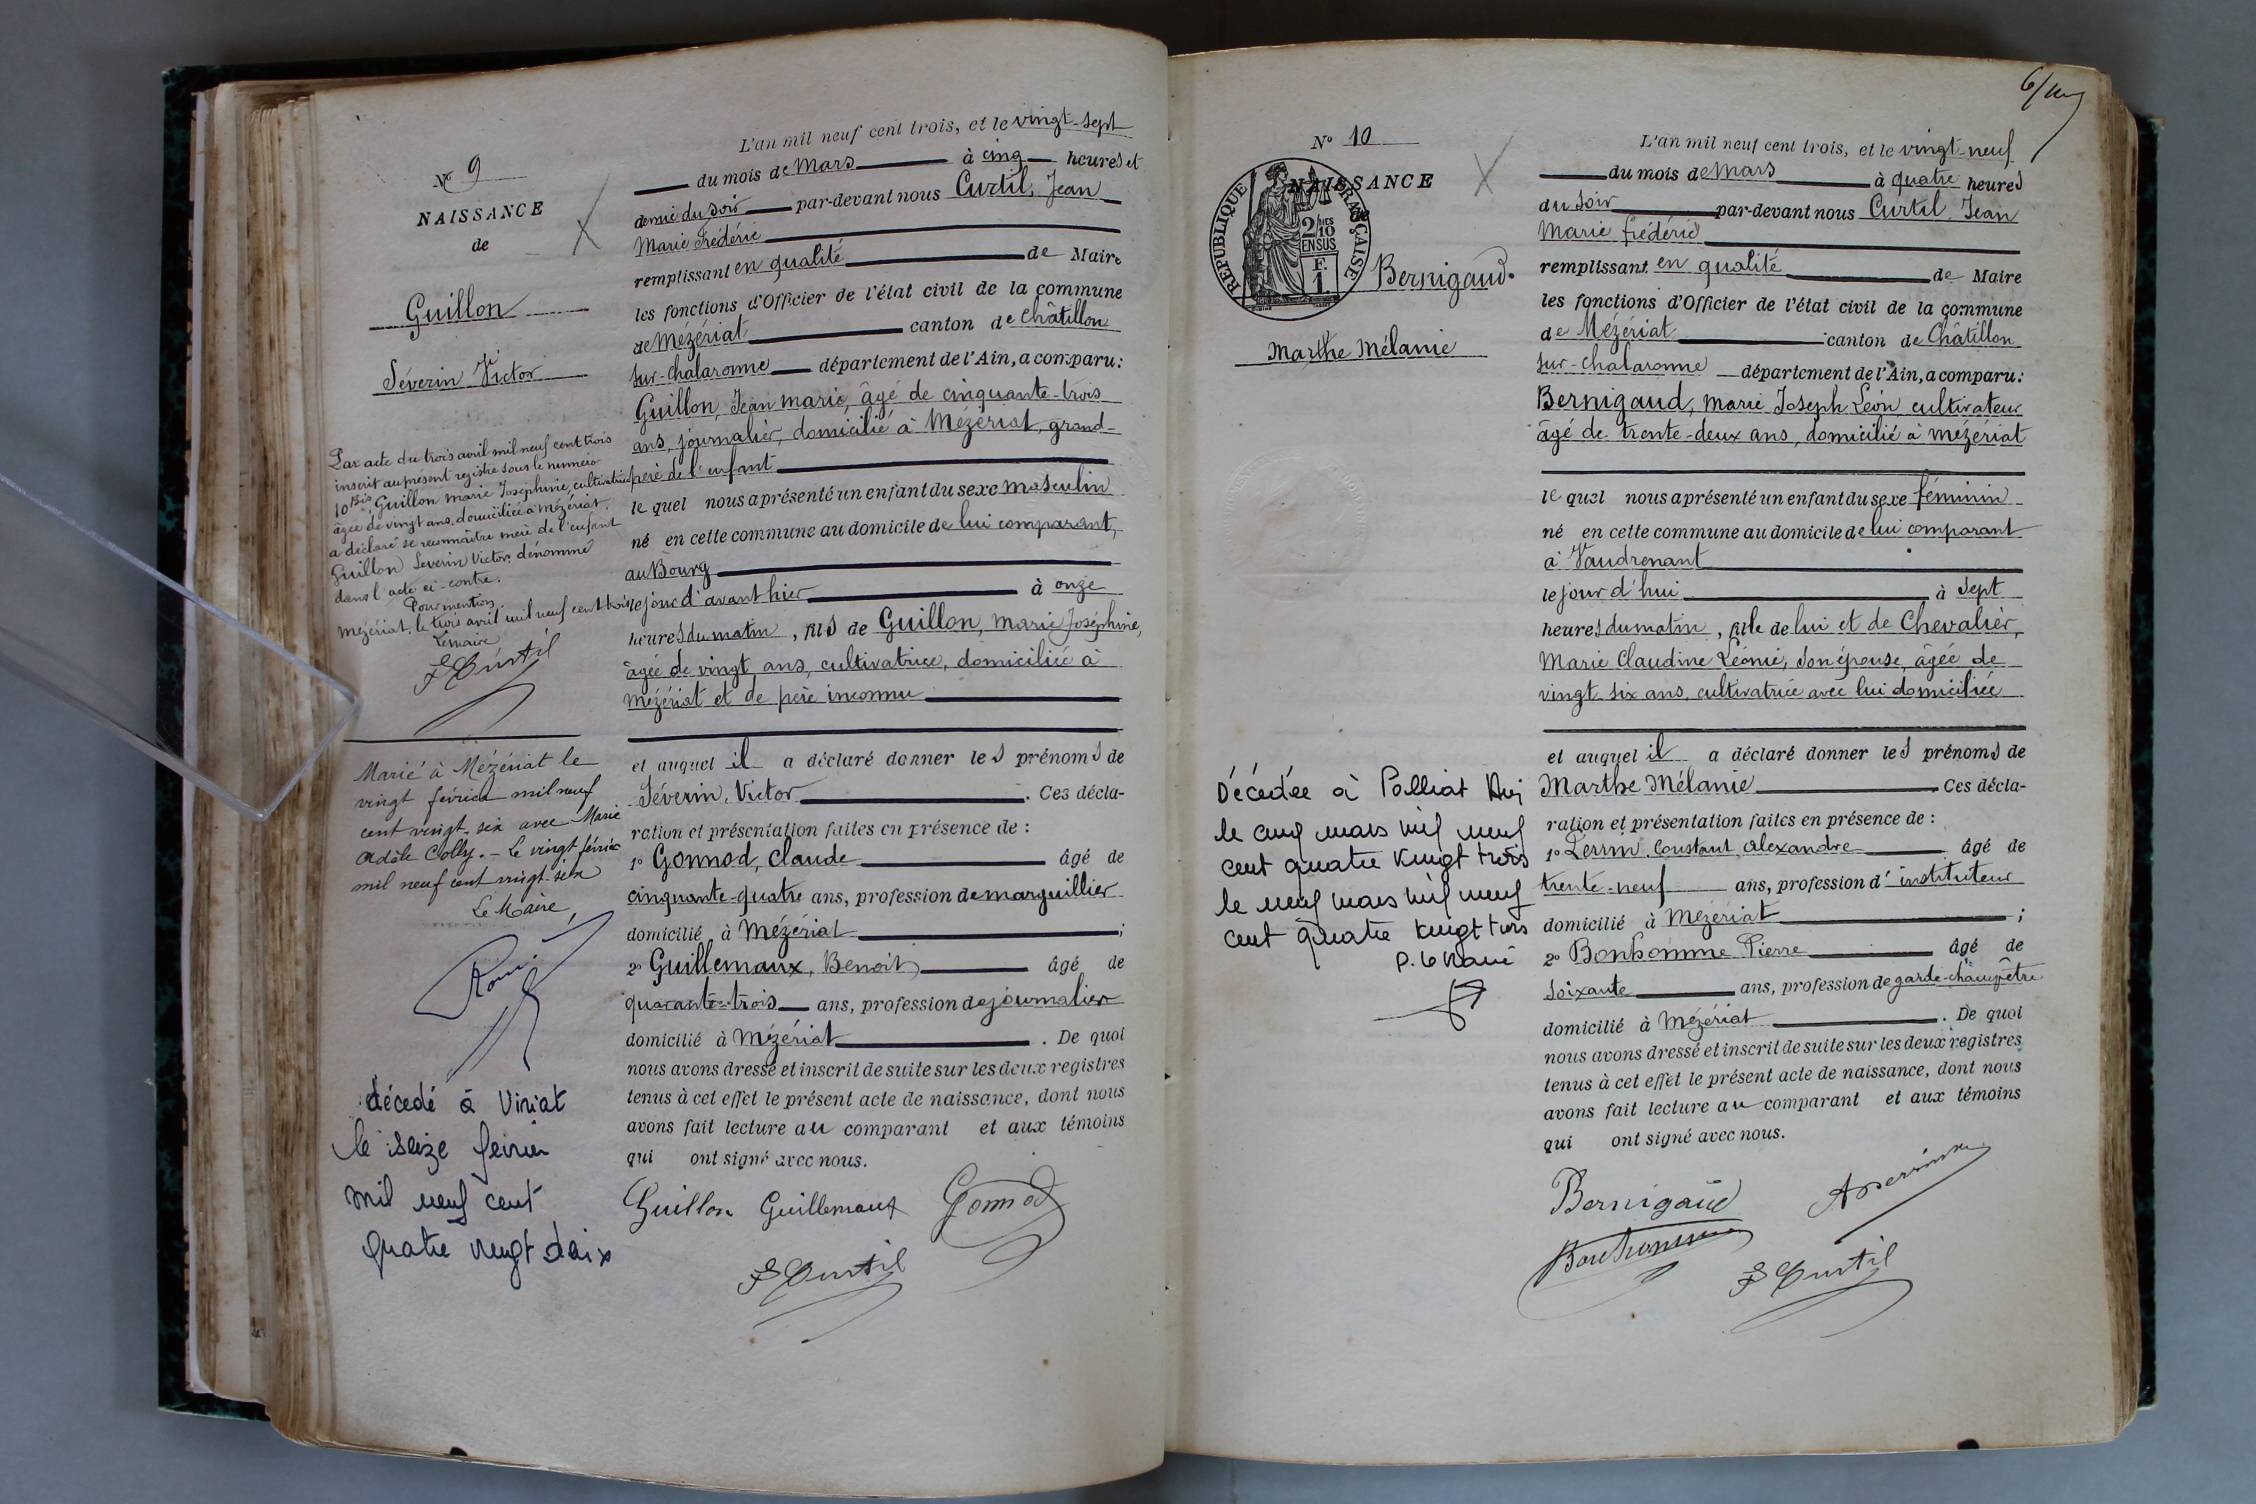 N° 9
NAISSANCE
de
Guillon
Séverin Victor
Par acte du trois avril mil neuf cent trois
inscrit au présent registre sous le numéro
10 Bis Guillon Marie Joséphine, cultivatrice
âgée de vingt ans, domiciliée à Mézériat,
a déclaré se reconnaître mère de l'enfant
Guillon Séverin Victor, dénommé
dans l'acte ci-contre.
Pour mention,
Mézériat, le trois avril mil neuf cent trois
Le maire
F Curtil
Marié à Mézériat le
vingt février mil neuf
cent vingt-six avec Marie
Adèle Colly. - Le vingt février
mil neuf cent vingt-six
Le Maire,
décédé à Viriat
le seize février
mil neuf cent
quatre vingt deix
L'an mil neuf cent trois, et le vingt-sept
du mois de Mars à cinq heures et
demie du soir par-devant nous Curtil, Jean
Marie Frédéric
remplissant en qualité de Maire
les fonctions d'Officier de l'état civil de la commune
de Mézériat canton de Châtillon
sur-Chalaronne département de l'Ain, a comparu:
Guillon, Jean Marie, âgé de cinquante-trois
ans, journalier, domicilié à Mézériat, grand-
père de l'enfant
le quel nous a présenté un enfant du sexe masculin
né en cette commune au domicile de lui comparant,
au Bourg
le jour d'avant hier à onze
heures du matin, fils de Guillon, Marie Joséphine,
âgée de vingt ans, cultivatrice, domiciliée à
Mézériat et de père inconnu
et auquel il a déclaré donner les prénoms de
Séverin, Victor. Ces décla-
ration et présentation faites en présence de :
1° Gonnod, Claude âgé de
cinquante-quatre ans, profession de marguillier
domicilié à Mézériat ;
2° Guillemaux, Benoit âgé de
quarante-trois ans, profession de journalier
domicilié à Mézériat. De quoi
nous avons dressé et inscrit de suite sur les deux registres
tenus à cet effet le présent acte de naissance, dont nous
avons fait lecture au comparant et aux témoins
qui ont signé avec nous.
Guillon Guillemaux Gonnod
F Curtil
6/
N° 10
NAISSANCE
de
REPUBLIQUE FRANÇAISE
2/10
EN SUS
F.
1.
Bernigaud.
Marthe Mélanie
Décédée à Polliat Ain
le cinq mars mil neuf
cent quatre vingt trois
le neuf mars mil neuf
cent quatre vingt trois
P. le Maire
L'an mil neuf cent trois, et le vingt-neuf
du mois de Mars à quatre heures
du soir par-devant nous Curtil, Jean
Marie Frédéric
remplissant en qualité de Maire
les fonctions d'Officier de l'état civil de la commune
de Mézériat canton de Châtillon
sur-Chalaronne département de l'Ain, a comparu:
Bernigaud, Marie Joseph Léon cultivateur
âgé de trente-deux ans, domicilié à Mézériat
le quel nous a présenté un enfant du sexe féminin
né en cette commune au domicile de lui comparant
à Vaudrenant
le jour d'hui à sept
heures du matin, fille de lui et de Chevalier,
Marie Claudine Léonie, son épouse, âgée de
vingt-six ans, cultivatrice avec lui domiciliée
et auquel il a déclaré donner les prénoms de
Marthe Mélanie. Ces décla-
ration et présentation faites en présence de :
1° Constant Alexandre âgé de
trente-neuf ans, profession d'instituteur
domicilié à Mézériat ;
2° Bonhomme Pierre âgé de
soixante ans, profession de garde-champêtre
domicilié à Mézériat. De quoi
nous avons dressé et inscrit de suite sur les deux registres
tenus à cet effet le présent acte de naissance, dont nous
avons fait lecture au comparant et aux témoins
qui ont signé avec nous.
Bernigaud
Bonhomme
F Curtil